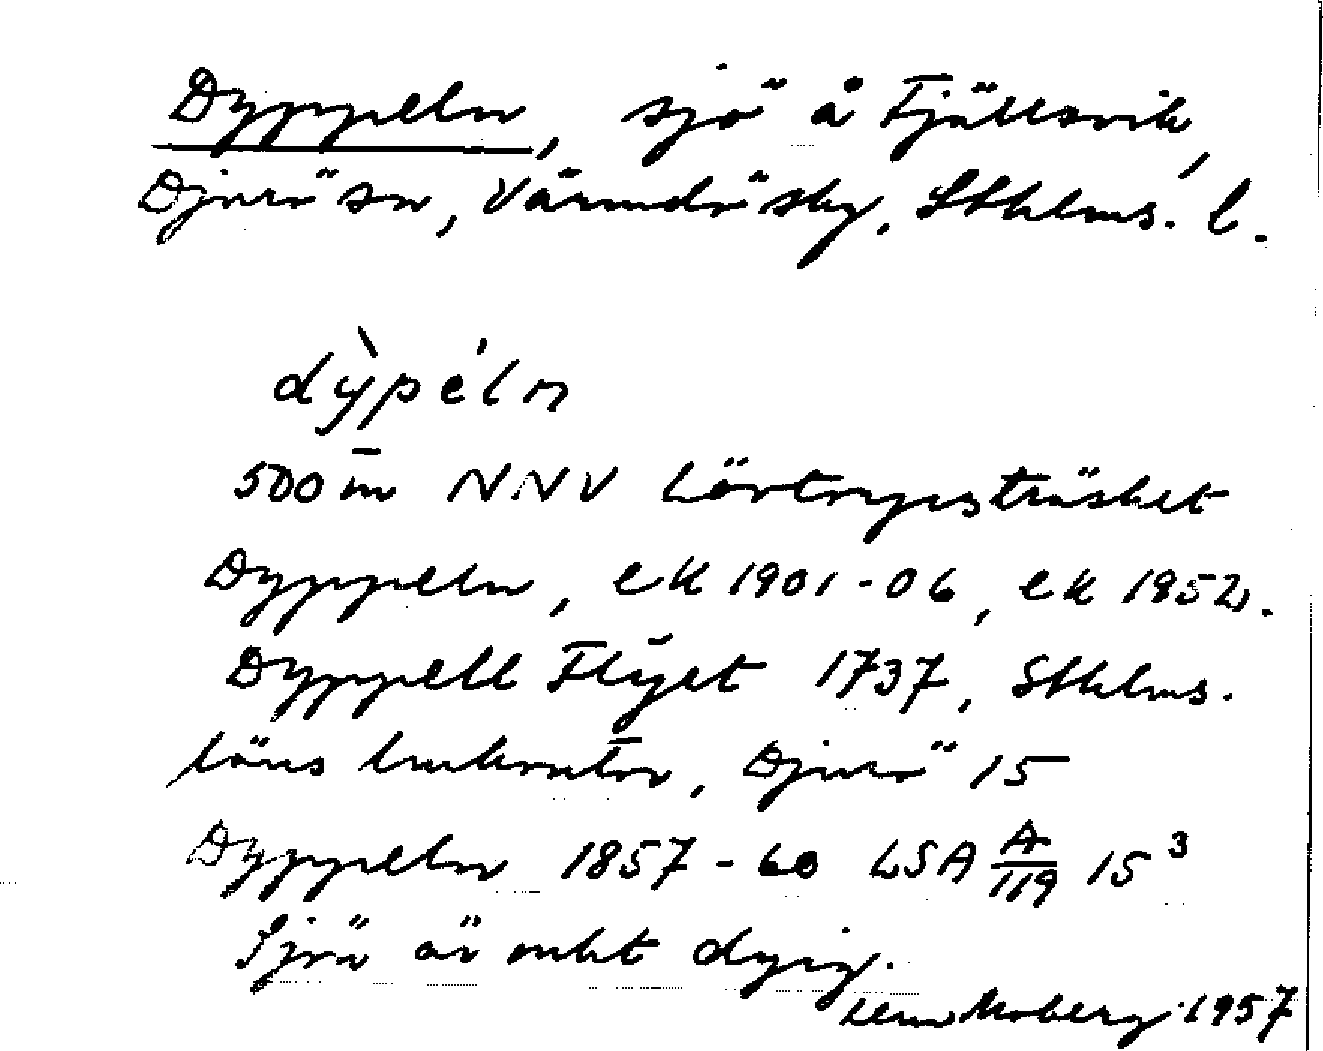 Dyppeln, sjö å Fjällsvik,
Djurö sn, Värmdö skg. Sthlms. l.
dỳpéln
500 m NNV Lövtryesträsket
Dyppeln, ek 1901-06, ek 1952.
Dyppell Flÿet 1737, Sthlms.
läns lmkontor, Djurö 15
Dyppeln 1857-60 LSA A/119 15³
Sjön är mkt dyig.
Lena Moberg 1957